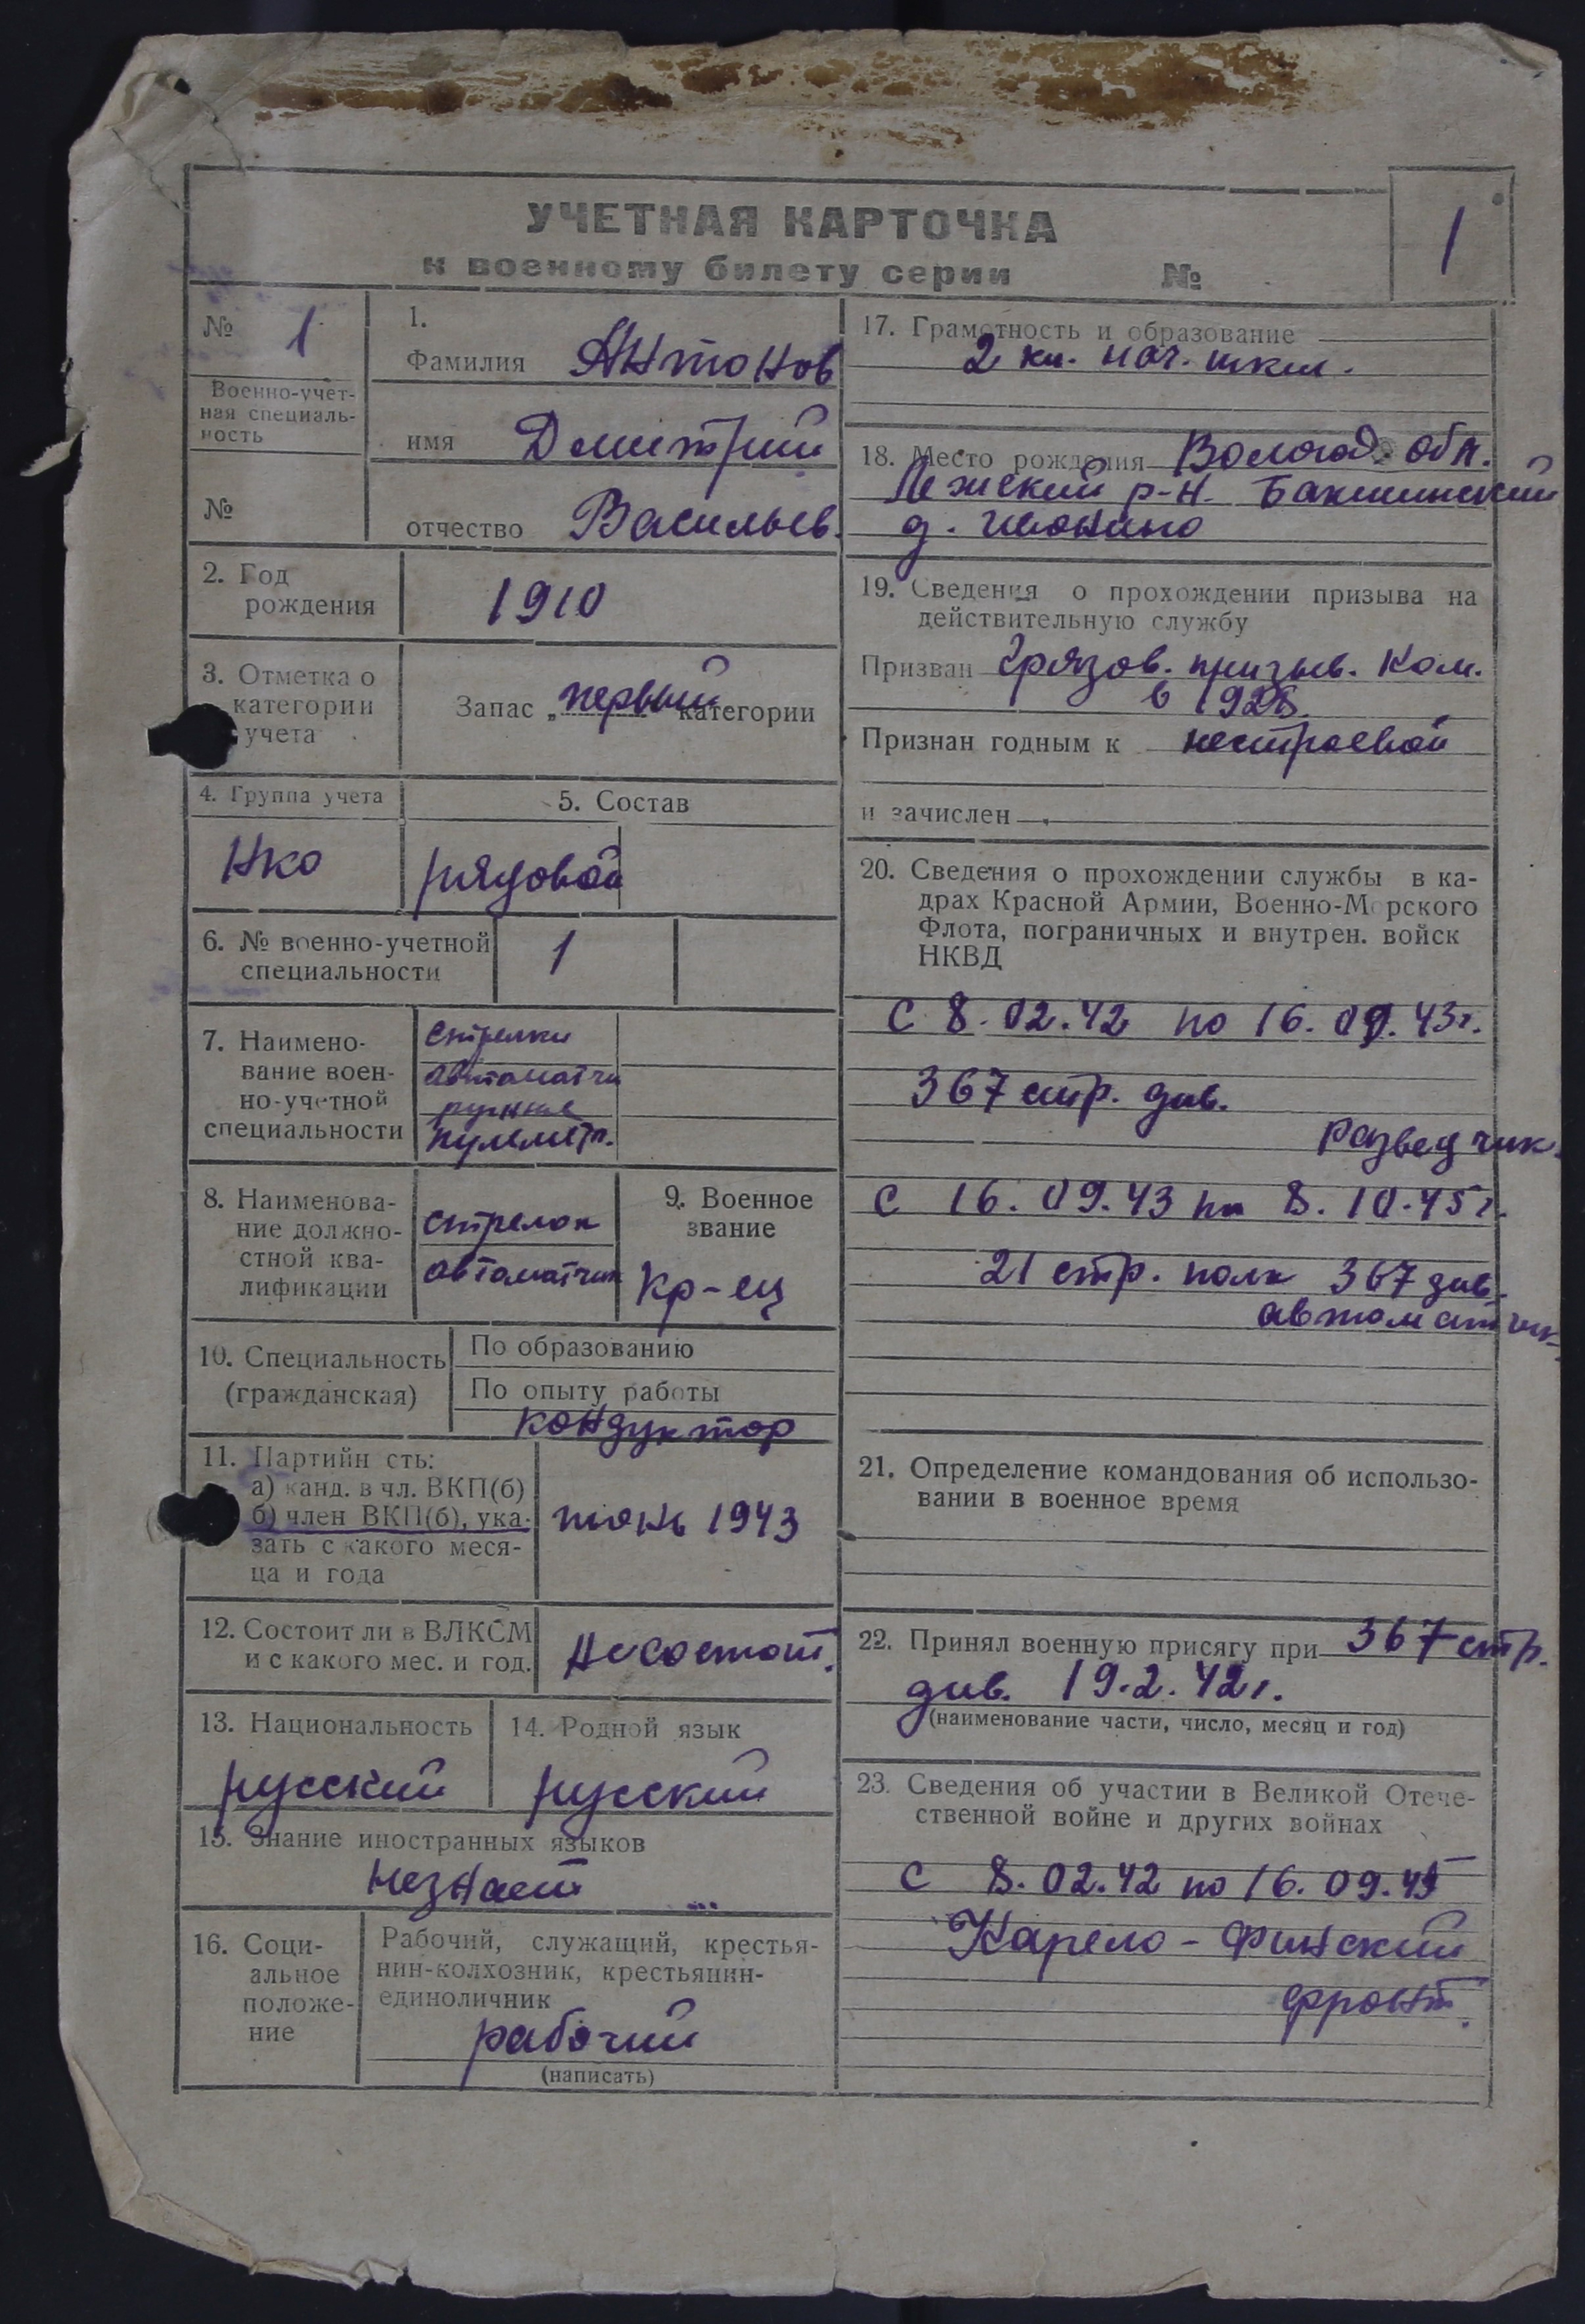 УЧЕТНАЯ КАРТОЧКА
к военному билету серии №
1
№ 1
Военно-учет-
ная специаль-
ность
№
1.
Фамилия Антонов
имя Дмитрий
отчество Васильев.
2. Год
рождения
1910
3. Отметка о
категории
учета
Запас „первый“ категории
4. Группа учета
НКО
5. Состав
рядовой
6. № военно-учетной
специальности
1
7. Наимено-
вание воен-
но-учетной
специальности
стрелки
автоматчи
ручные
пулемет.
8. Наименова-
ние должно-
стной ква-
лификации
стрелок
автоматчик
9. Военное
звание
Кр-ец
10. Специальность
(гражданская)
По образованию
По опыту работы
кондуктор
11. Партийн сть:
а) канд. в чл. ВКП(б)
б) член ВКП(б), ука-
зать с какого меся-
ца и года
1943
12. Состоит ли в ВЛКСМ
и с какого мес. и год.
Несостоит.
13. Национальность
русский
14. Родной язык
русский
15. Знание иностранных языков
незнает
16. Соци-
альное
положе-
ние
Рабочий, служащий, крестья-
нин-колхозник, крестьянин-
единоличник
рабочий
(написать)
17. Грамотность и образование
2 кл. нач. шкл.
18. Место рождения Вологод. обл.
Лежский р-н. Бакшинский
д.
19. Сведения о прохождении призыва на
действительную службу
Призван Грязов. призыв. Ком.
в
Признан годным к нестроевой
и зачислен
20. Сведения о прохождении службы в ка-
драх Красной Армии, Военно-Морского
Флота, пограничных и внутрен. войск
НКВД
С 8.02.42 по 16.09.43г.
367 стр. див.
разведчик.
С 16.09.43 по 8.10.45г.
21 стр. полк 367 див.
автоматчик.
21. Определение командования об использо-
вании в военное время
22. Принял военную присягу при 367 стр.
див. 19.2.42г.
(наименование части, число, месяц и год)
23. Сведения об участии в Великой Отече-
ственной войне и других войнах
С 8.02.42 по 16.09.45
Карело-Финский
фронт.